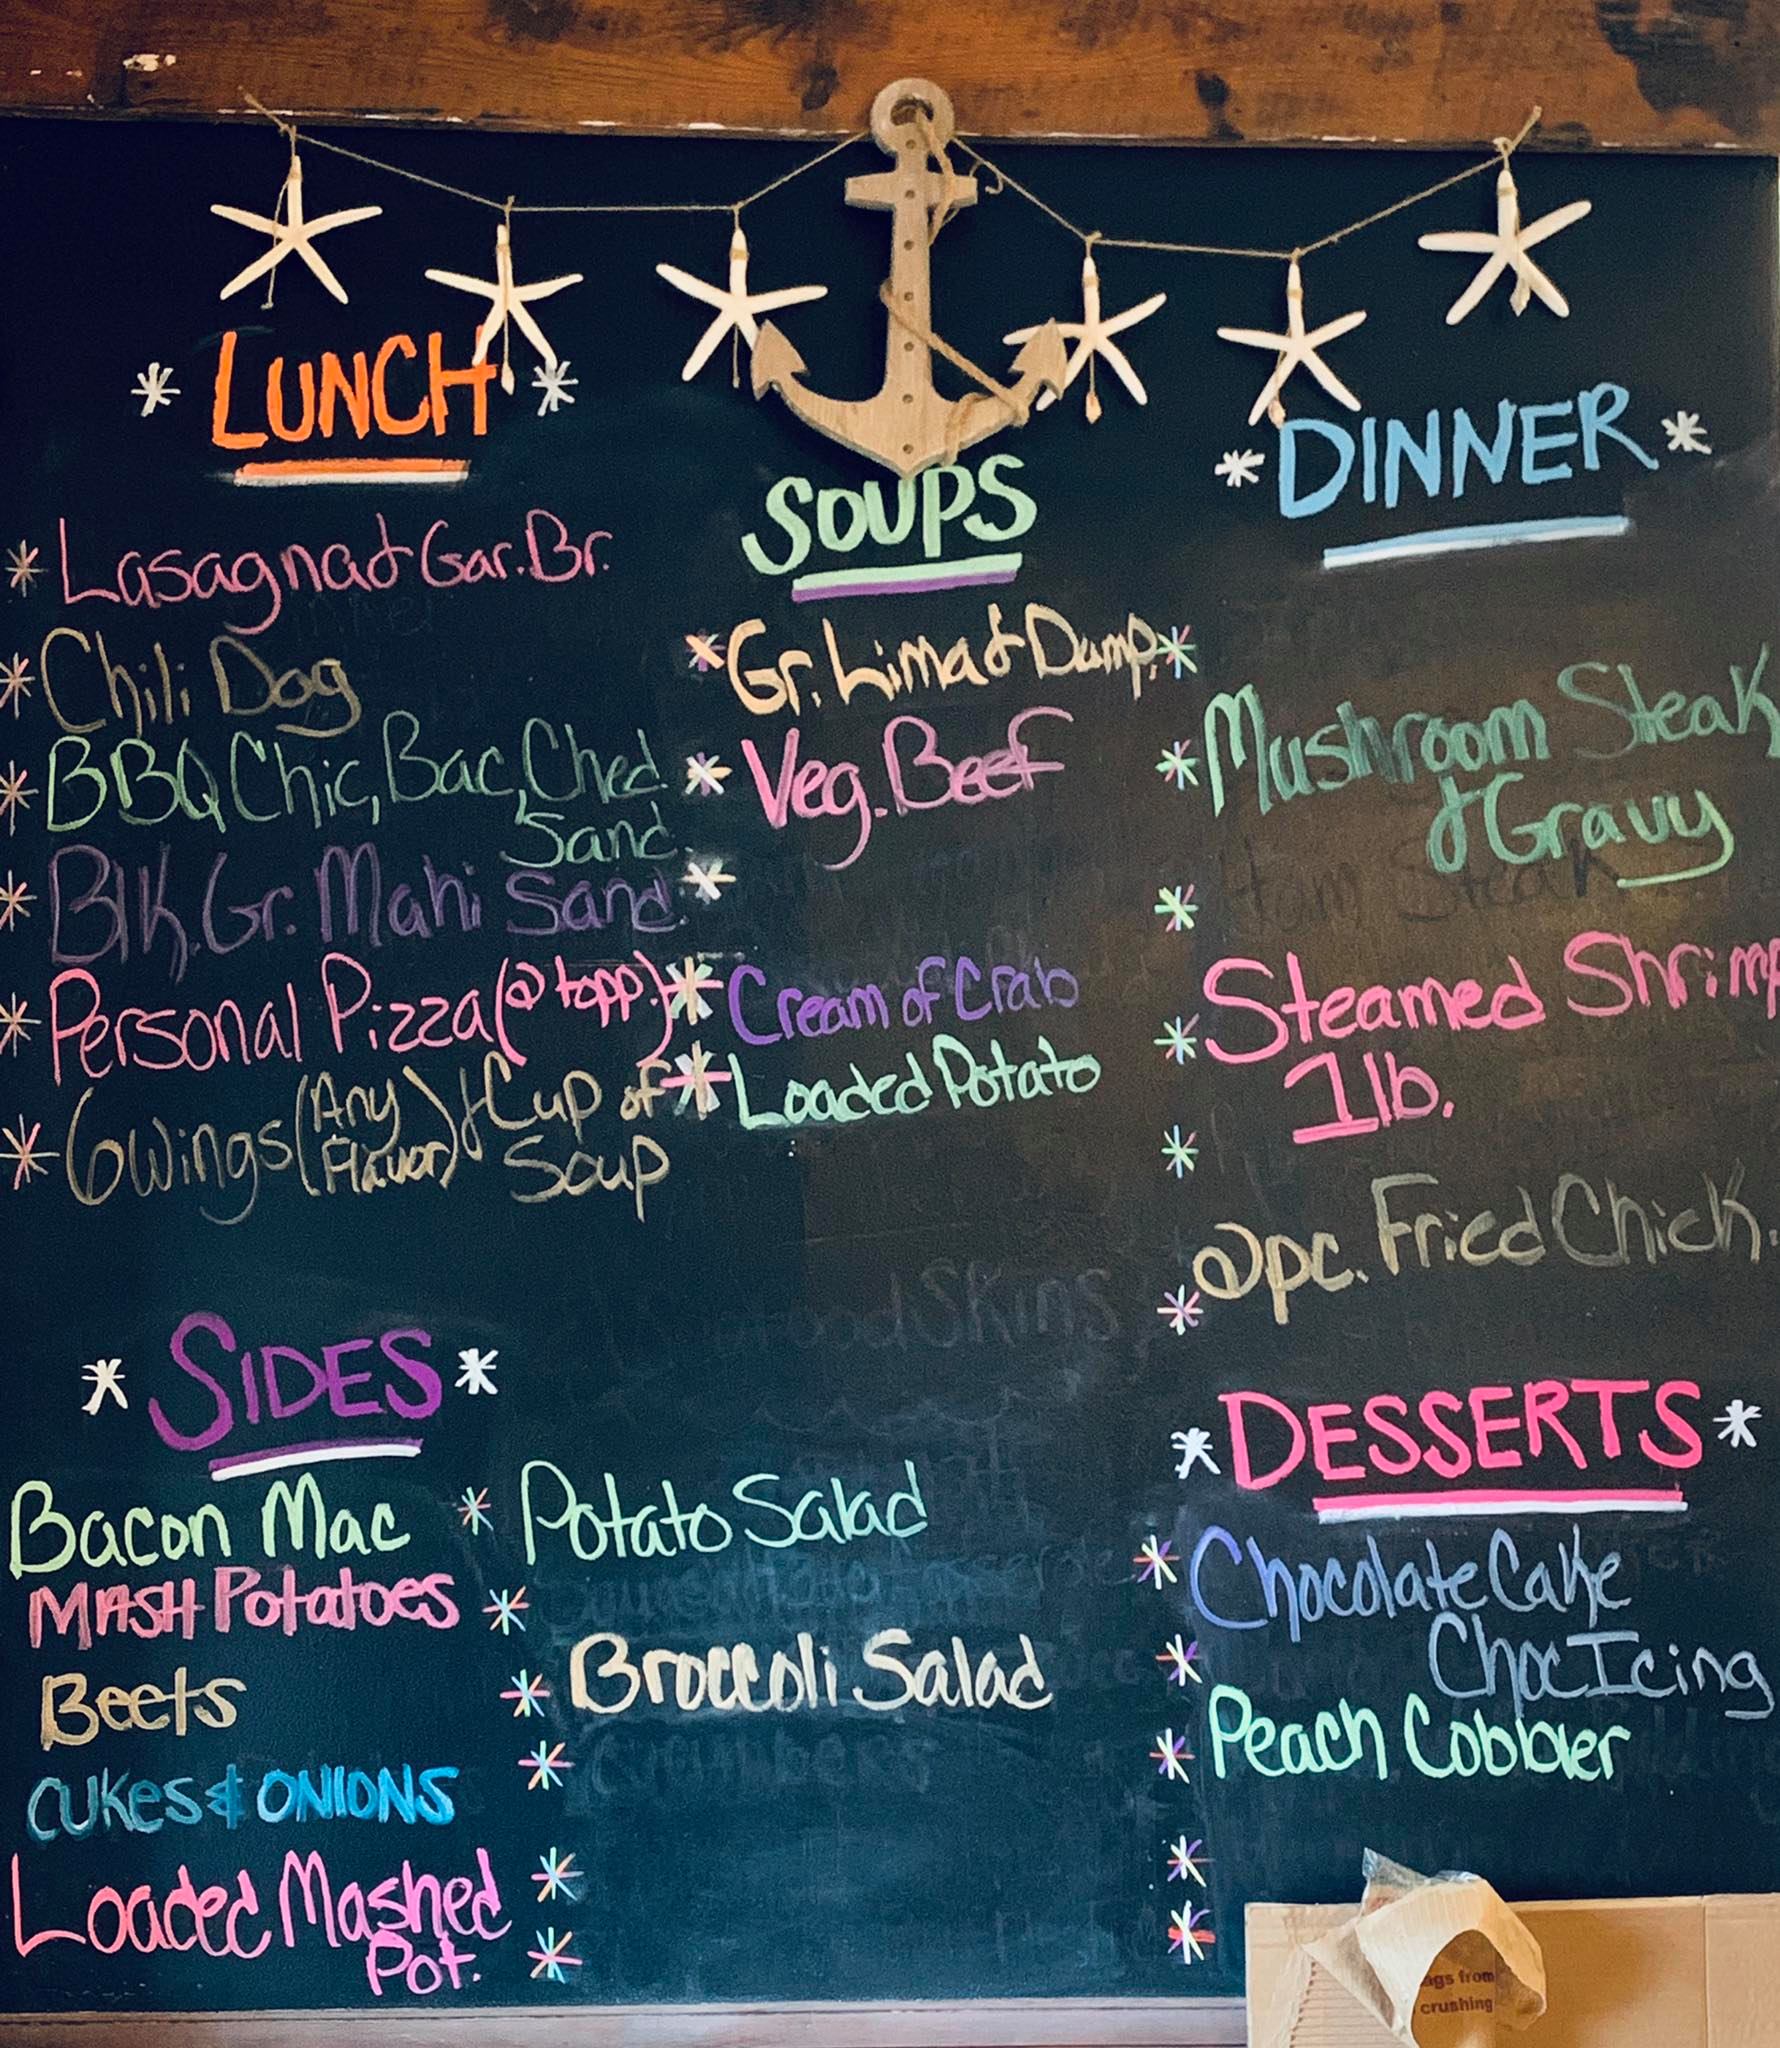 LUNCH
Lasagna & Gar. Br.
Chili Dog
BBQ Chic, Bac, Ched
Sand.
Blk. Gr. Mahi Sand.
Personal Pizza (2 topp.)
6 Wings (Any Flavor) & Cup of
Soup
SOUPS
Gr. Lima & Dump.
Veg. Beef
Cream of Crab
Loaded Potato
DINNER
Mushroom Steak
& Gravy
Ham Steak
Steamed Shrimp
1 lb.
2 pc. Fried Chick.
SIDES
Bacon Mac
MASH Potatoes
Beets
CUKES & ONIONS
Loaded Mashed
Pot.
Potato Salad
Broccoli Salad
Cucumbers
Skins
DESSERTS
Chocolate Cake
Choc Icing
Peach Cobbler
ags from
crushing